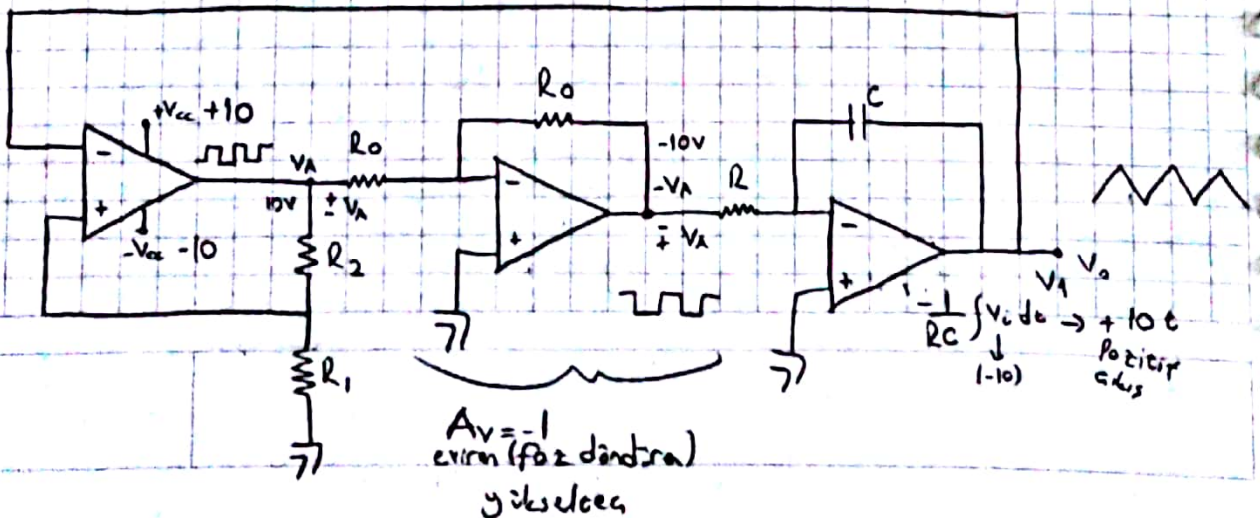 +Vcc +10
-Vcc -10
-
+
VA
10V
R0
+
- VA
R2
R1
R0
-
+
-10V
-VA
-
+ VA
R
C
-
+
V0
V1
-1/RC ∫ Vi dt → + 10 t
(-10)
Pozitif
çıkış
Av = -1
eviren (faz döndüren)
yükselteç